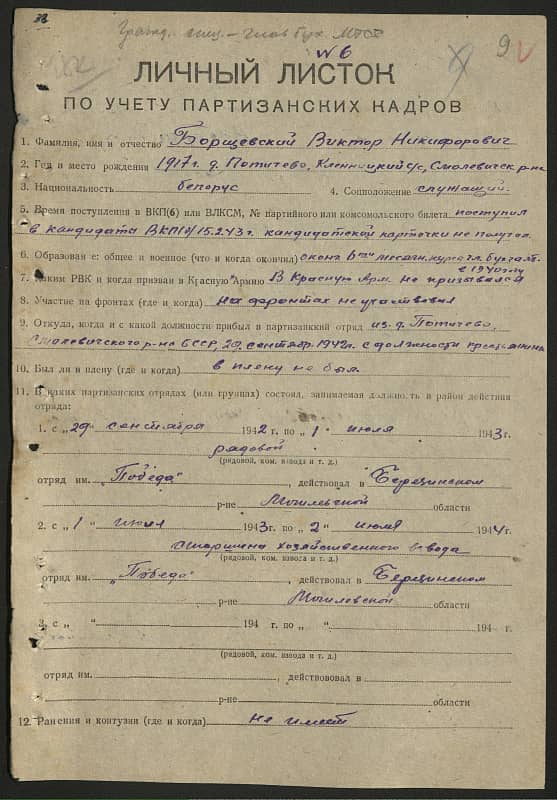 38
Гражд. спец. - глав бух МТС
№ 6
9
ЛИЧНЫЙ ЛИСТОК
ПО УЧЕТУ ПАРТИЗАНСКИХ КАДРОВ
1. Фамилия, имя и отчество Борщевский Виктор Никифорович
2. Год и место рождения 1917 г. д. Потичево, Кленникский с/с, Смолевичск. р-на
3. Национальность белорус 4. Соцположение служащий.
5. Время поступления в ВКП(б) или ВЛКСМ, № партийного или комсомольского билета поступил
в кандидата ВКП(б) 15.2.43 г. кандидатской карточки не получал
6. Образован е: общее и военное (что и когда окончил) оконч. 6ти месячн. курсы гл. бухгалт.
с 1940 году
7. Каким РВК и когда призван в Красную Армию В Красную Арм. не призывался
8. Участие на фронтах (где и когда) на фронтах не участвовал
9. Откуда, когда и с какой должности прибыл в партизанский отряд из д. Потичево,
Смолевичского р-на БССР, 29 сентябр. 1942 г. с должности крестьянина
10. Был ли в плену (где и когда) в плену не был.
11. В каких партизанских отрядах (или группах) состоял, занимаемая должность и район действия
отряда:
1. с „29 сентября 1942 г. по „1 " июля 1943 г.
рядовой
(рядовой, ком. взвода и т. д.)
отряд им. „Победа" , действовал в Березинском
р-не Могилевской области
2. с „1 " июля 1943 г. по „2 " июля 1944 г.
старшина хозяйственного взвода
(рядовой, ком. взвода и т. д.)
отряд им. „Победа" , действовал в Березинском
р-не Могилевской области
3. с „ " 194 г. по „ " 194 г.
(рядовой, ком. взвода и т. д.)
отряд им. , действововал в
р-не области
12. Ранения и контузии (где и когда) не имеет